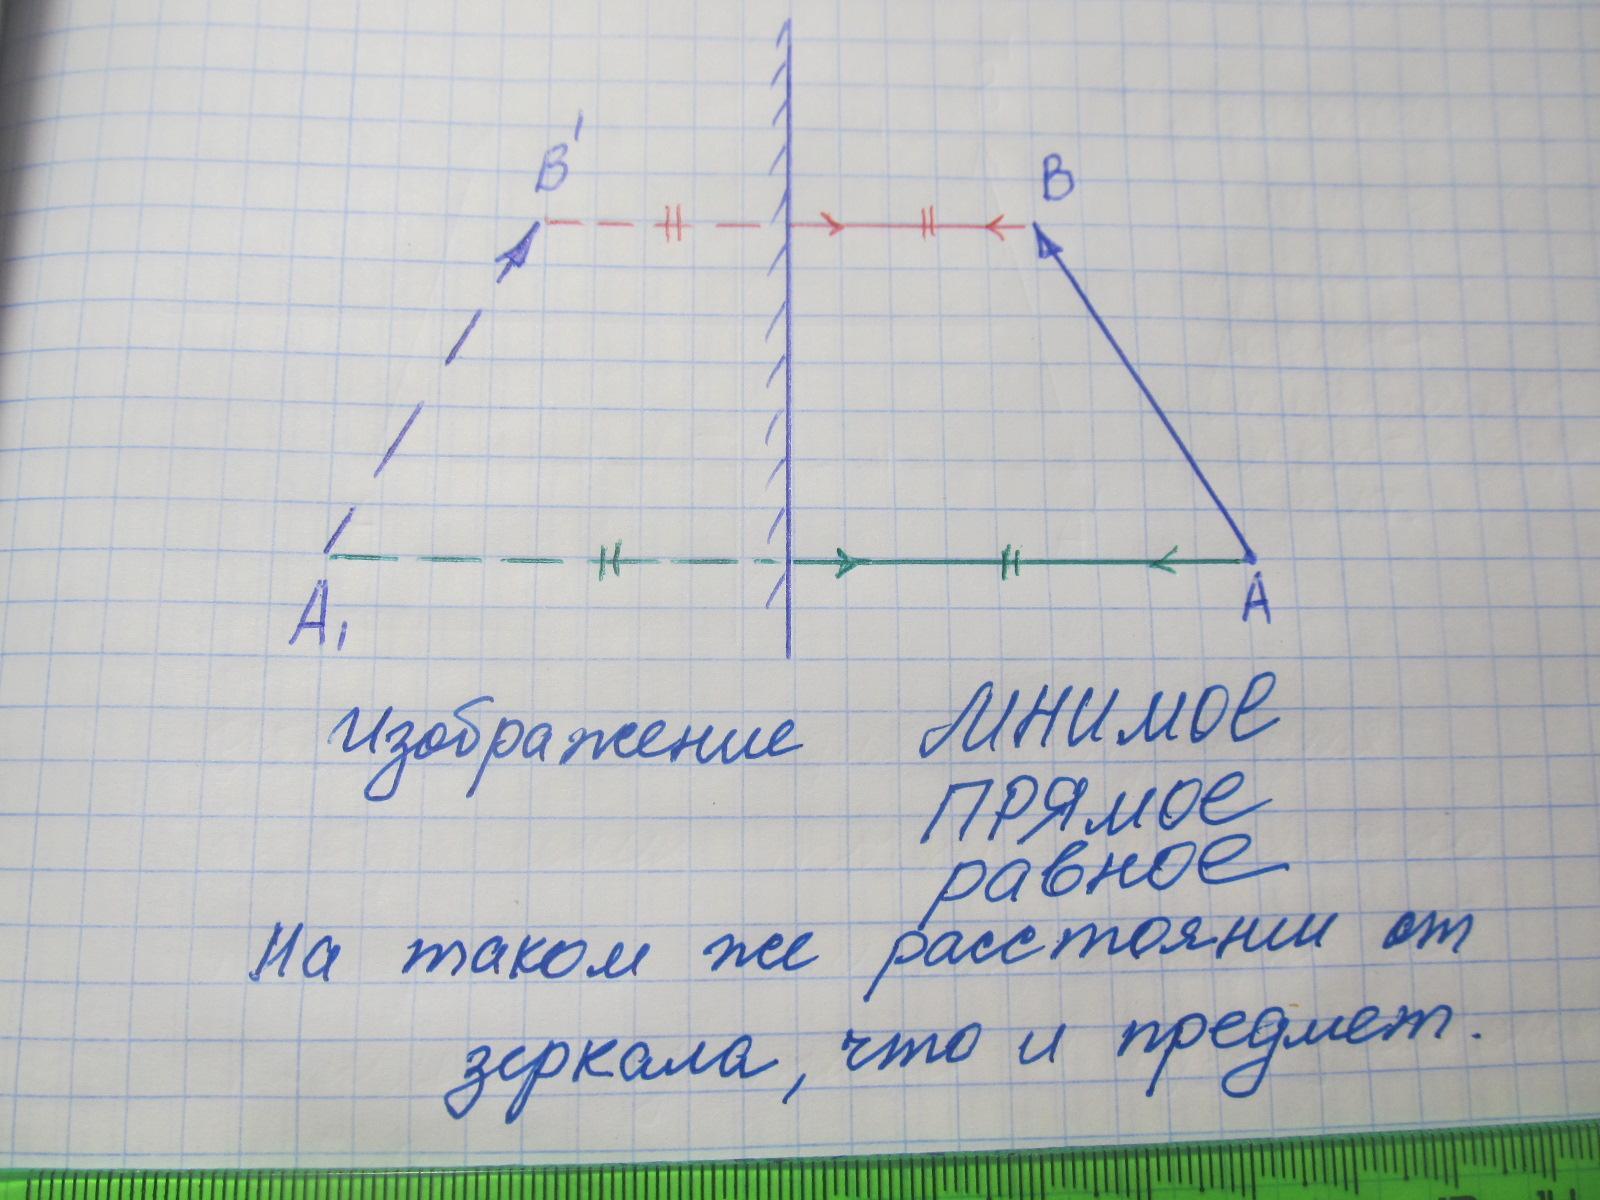 B' B
A₁ A
Изображение мнимое
прямое
равное
На таком же расстоянии от
зеркала, что и предмет.